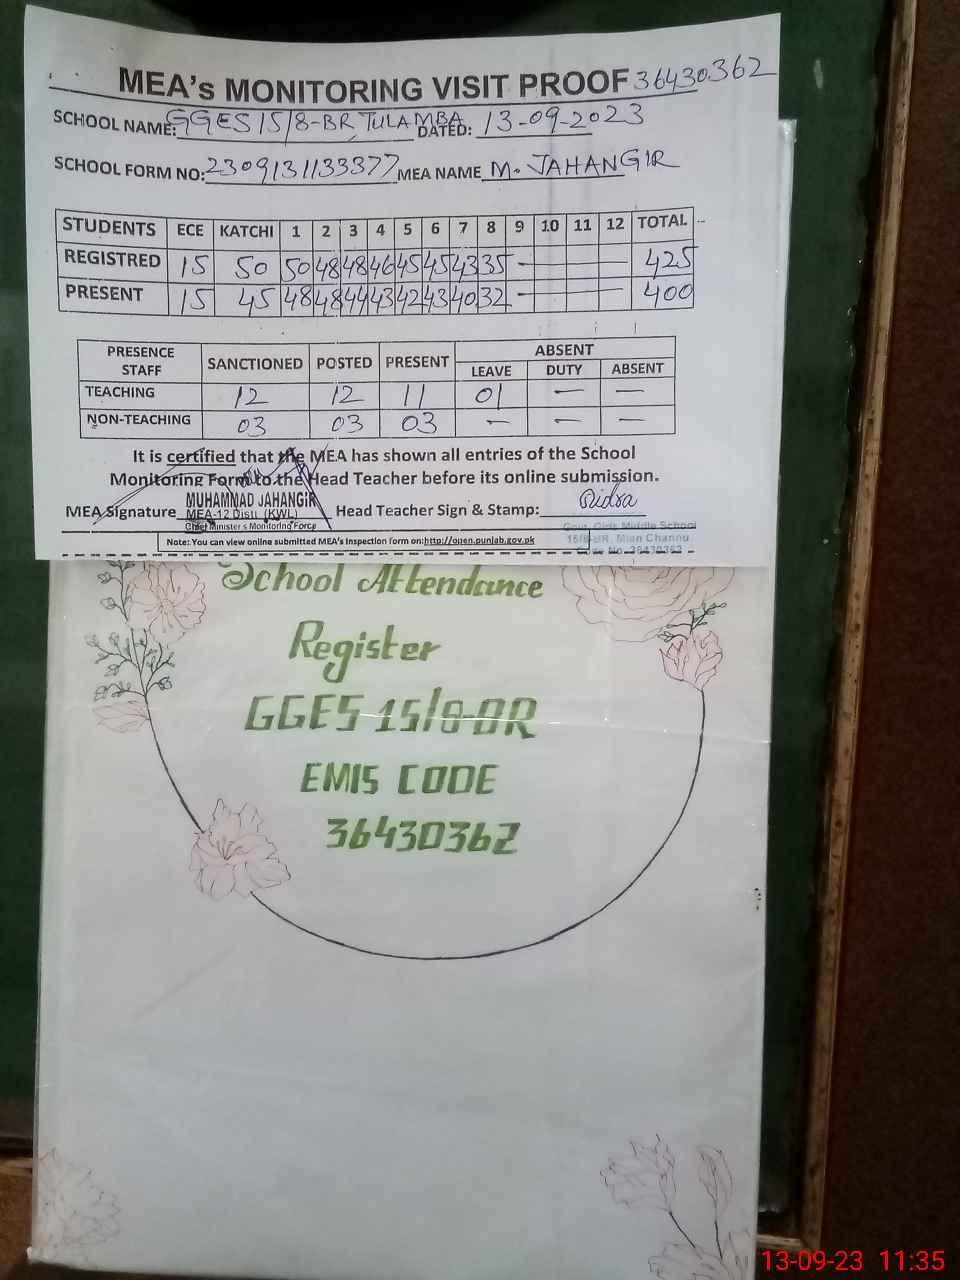 MEA's MONITORING VISIT PROOF 36430362
SCHOOL NAME: GGES 15/8-BR, TULAMBA DATED: 13-09-2023
SCHOOL FORM NO: 2309131133377 MEA NAME M. JAHANGIR
STUDENTS ECE KATCHI 1 2 3 4 5 6 7 8 9 10 11 12 TOTAL
REGISTRED 15 50 50 48 48 46 45 45 43 35 - 425
PRESENT 15 45 48 48 44 43 42 43 40 32 - 400
PRESENCE STAFF SANCTIONED POSTED PRESENT ABSENT
LEAVE DUTY ABSENT
TEACHING 12 12 11 01 — —
NON-TEACHING 03 03 03 - — —
It is certified that the MEA has shown all entries of the School
Monitoring Form to the Head Teacher before its online submission.
MEA Signature MUHAMMAD JAHANGIR Head Teacher Sign & Stamp: Sidra
MEA-12 Distt (KWL)
Chief Minister's Monitoring Force
Govt. Girls Middle School
15/8-BR. Mian Channu
Code No. 36430362
Note: You can view online submitted MEA's inspection form on:http://open.punjab.gov.pk
School Attendance
Register
GGES 15/8-BR
EMIS CODE
36430362
13-09-23 11:35